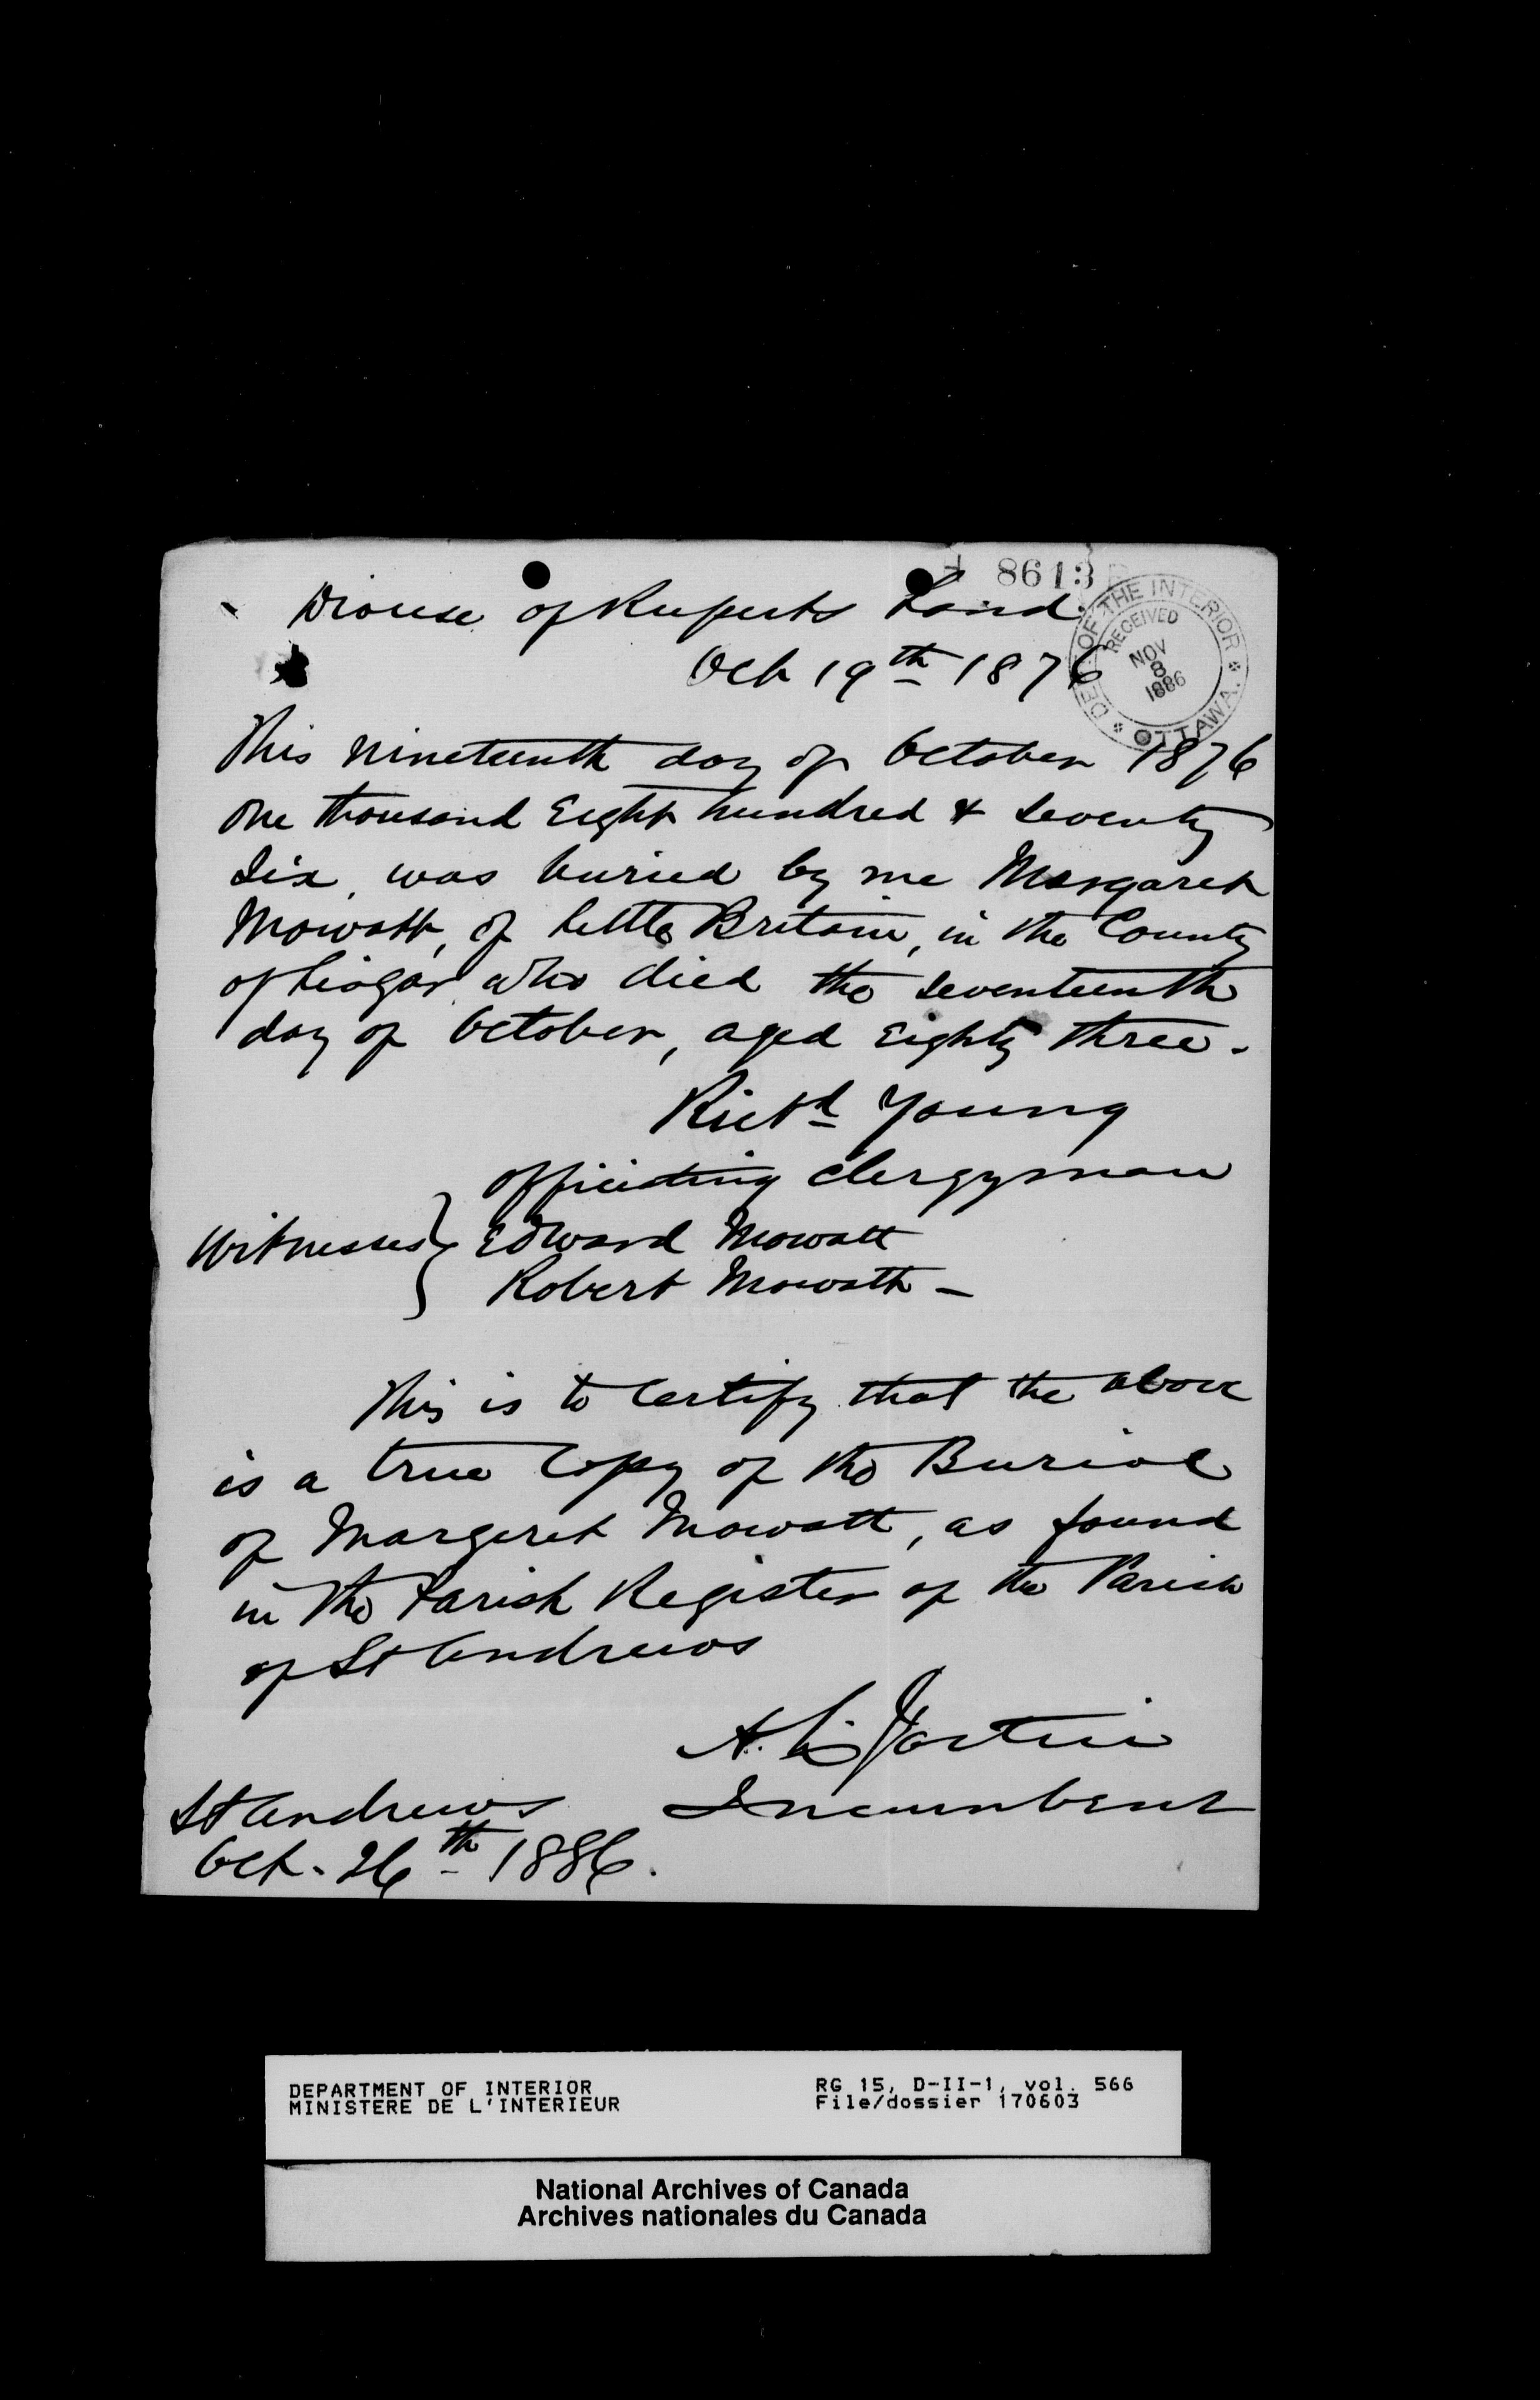 8613
DEPT OF THE INTERIOR
RECEIVED
NOV
8
1886
OTTAWA.
Diocese of Ruperts Land.
Oct 19th 1876
This nineteenth day of October 1876
One thousand Eight hundred & Seventy
Six, was buried by me Margaret
Mowatt, of Little Britain, in the County
of Lisgar who died the seventeenth
day of October, aged Eighty three.
Richd Young
officiating Clergyman
Witnesses } Edward Mowatt
Robert Mowatt -
This is to Certify that the above
is a true Copy of the Burial
of Margaret Mowatt, as found
in the Parish Register of the Parish
of St Andrews
Incumbent
St Andrews
Oct. 26th 1886.
DEPARTMENT OF INTERIOR
MINISTERE DE L'INTERIEUR
RG 15, D-II-1, vol. 566
File/dossier 170603
National Archives of Canada
Archives nationales du Canada